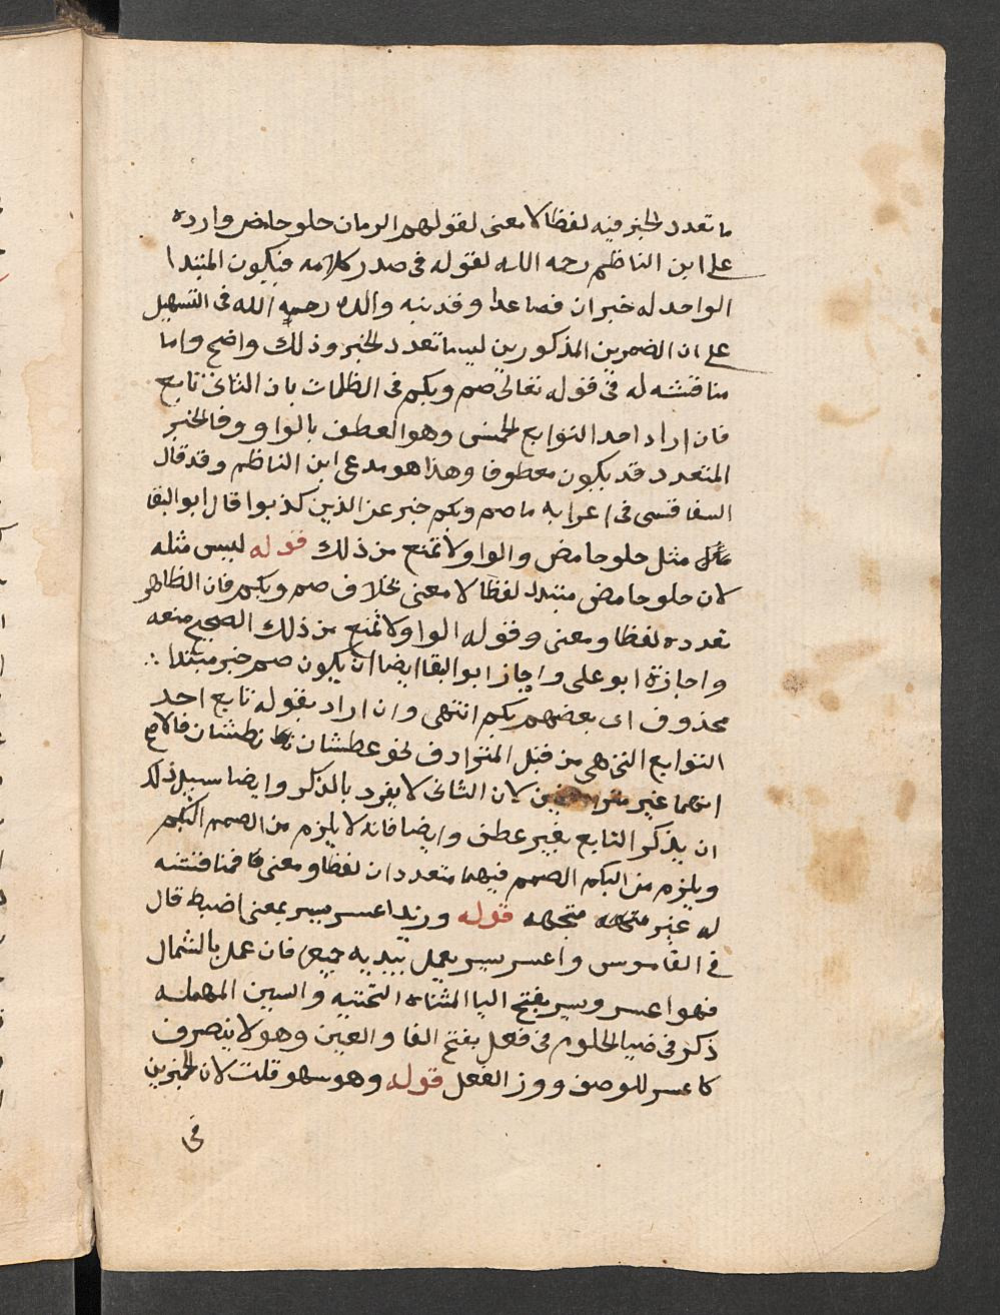 ما تعدد الخبر فيه لفظا لا معنى لقولهم الرمان حلو حامض وارده
على ابن الناظم رحمه الله لقوله في صدر كلامه فيكون المبتدا
الواحد له خبران فصاعدا وقد نبه والده رحمه الله في التسهيل
على ان الضربين المذكورين ليسا تعدد الخبر وذلك واضح واما
مناقشته له في قوله تعالى صم وبكم في الظلمات بان الثاني تابع
فان اراد احد التوابع الخمسى وهو العطف بالواو وفالخبر
المتعدد قد يكون معطوفا وهذا هو مدعى ابن الناظم وقد قال
السفاقسي في اعرابه ما صم وبكم خبر عن الذين كذبوا قال ابو البقا
مثل حلو حامض والواو لا تمنع من ذلك قوله ليس مثله
لان حلو حامض متعدد لفظا لا معنى بخلاف صم وبكم فان الظاهر
تعدده لفظا ومعنى وقوله الواو لا تمنع من ذلك الصحيح منعه
واجازة ابو على واجاز ابو البقا ايضا ان يكون صم خبر مبتدا
محذوف اى بعضهم بكم انتهى وان اراد بقوله تابع احد
التوابع التي هي من قبل المترادف نحو عطشان نطشان فالاصح
انهما غير لان الثاني لا يفرد بالذكر وايضا سبيل ذلك
ان يذكر التابع بغير عطف وايضا فانه لا يلزم من الصمم البكم
ويلزم من البكم الصمم فيهما متعددان لفظا ومعنى فما فمناقشته
له غير متجهه قوله وزيد اعسر يسر بمعنى اضبط قال
في القاموس واعسر يسر يعمل بيديه جميعا فان عمل بالشمال
فهو اعسر ويسر بفتح اليا المثناه التحتيه والسين المهمله
ذكر في ضيا الحلوم في فعل بفتح الفا والعين وهو لا ينصرف
كاعسر للوصف ووزن الفعل قوله وهو سهو قلت لان الخبرين
في